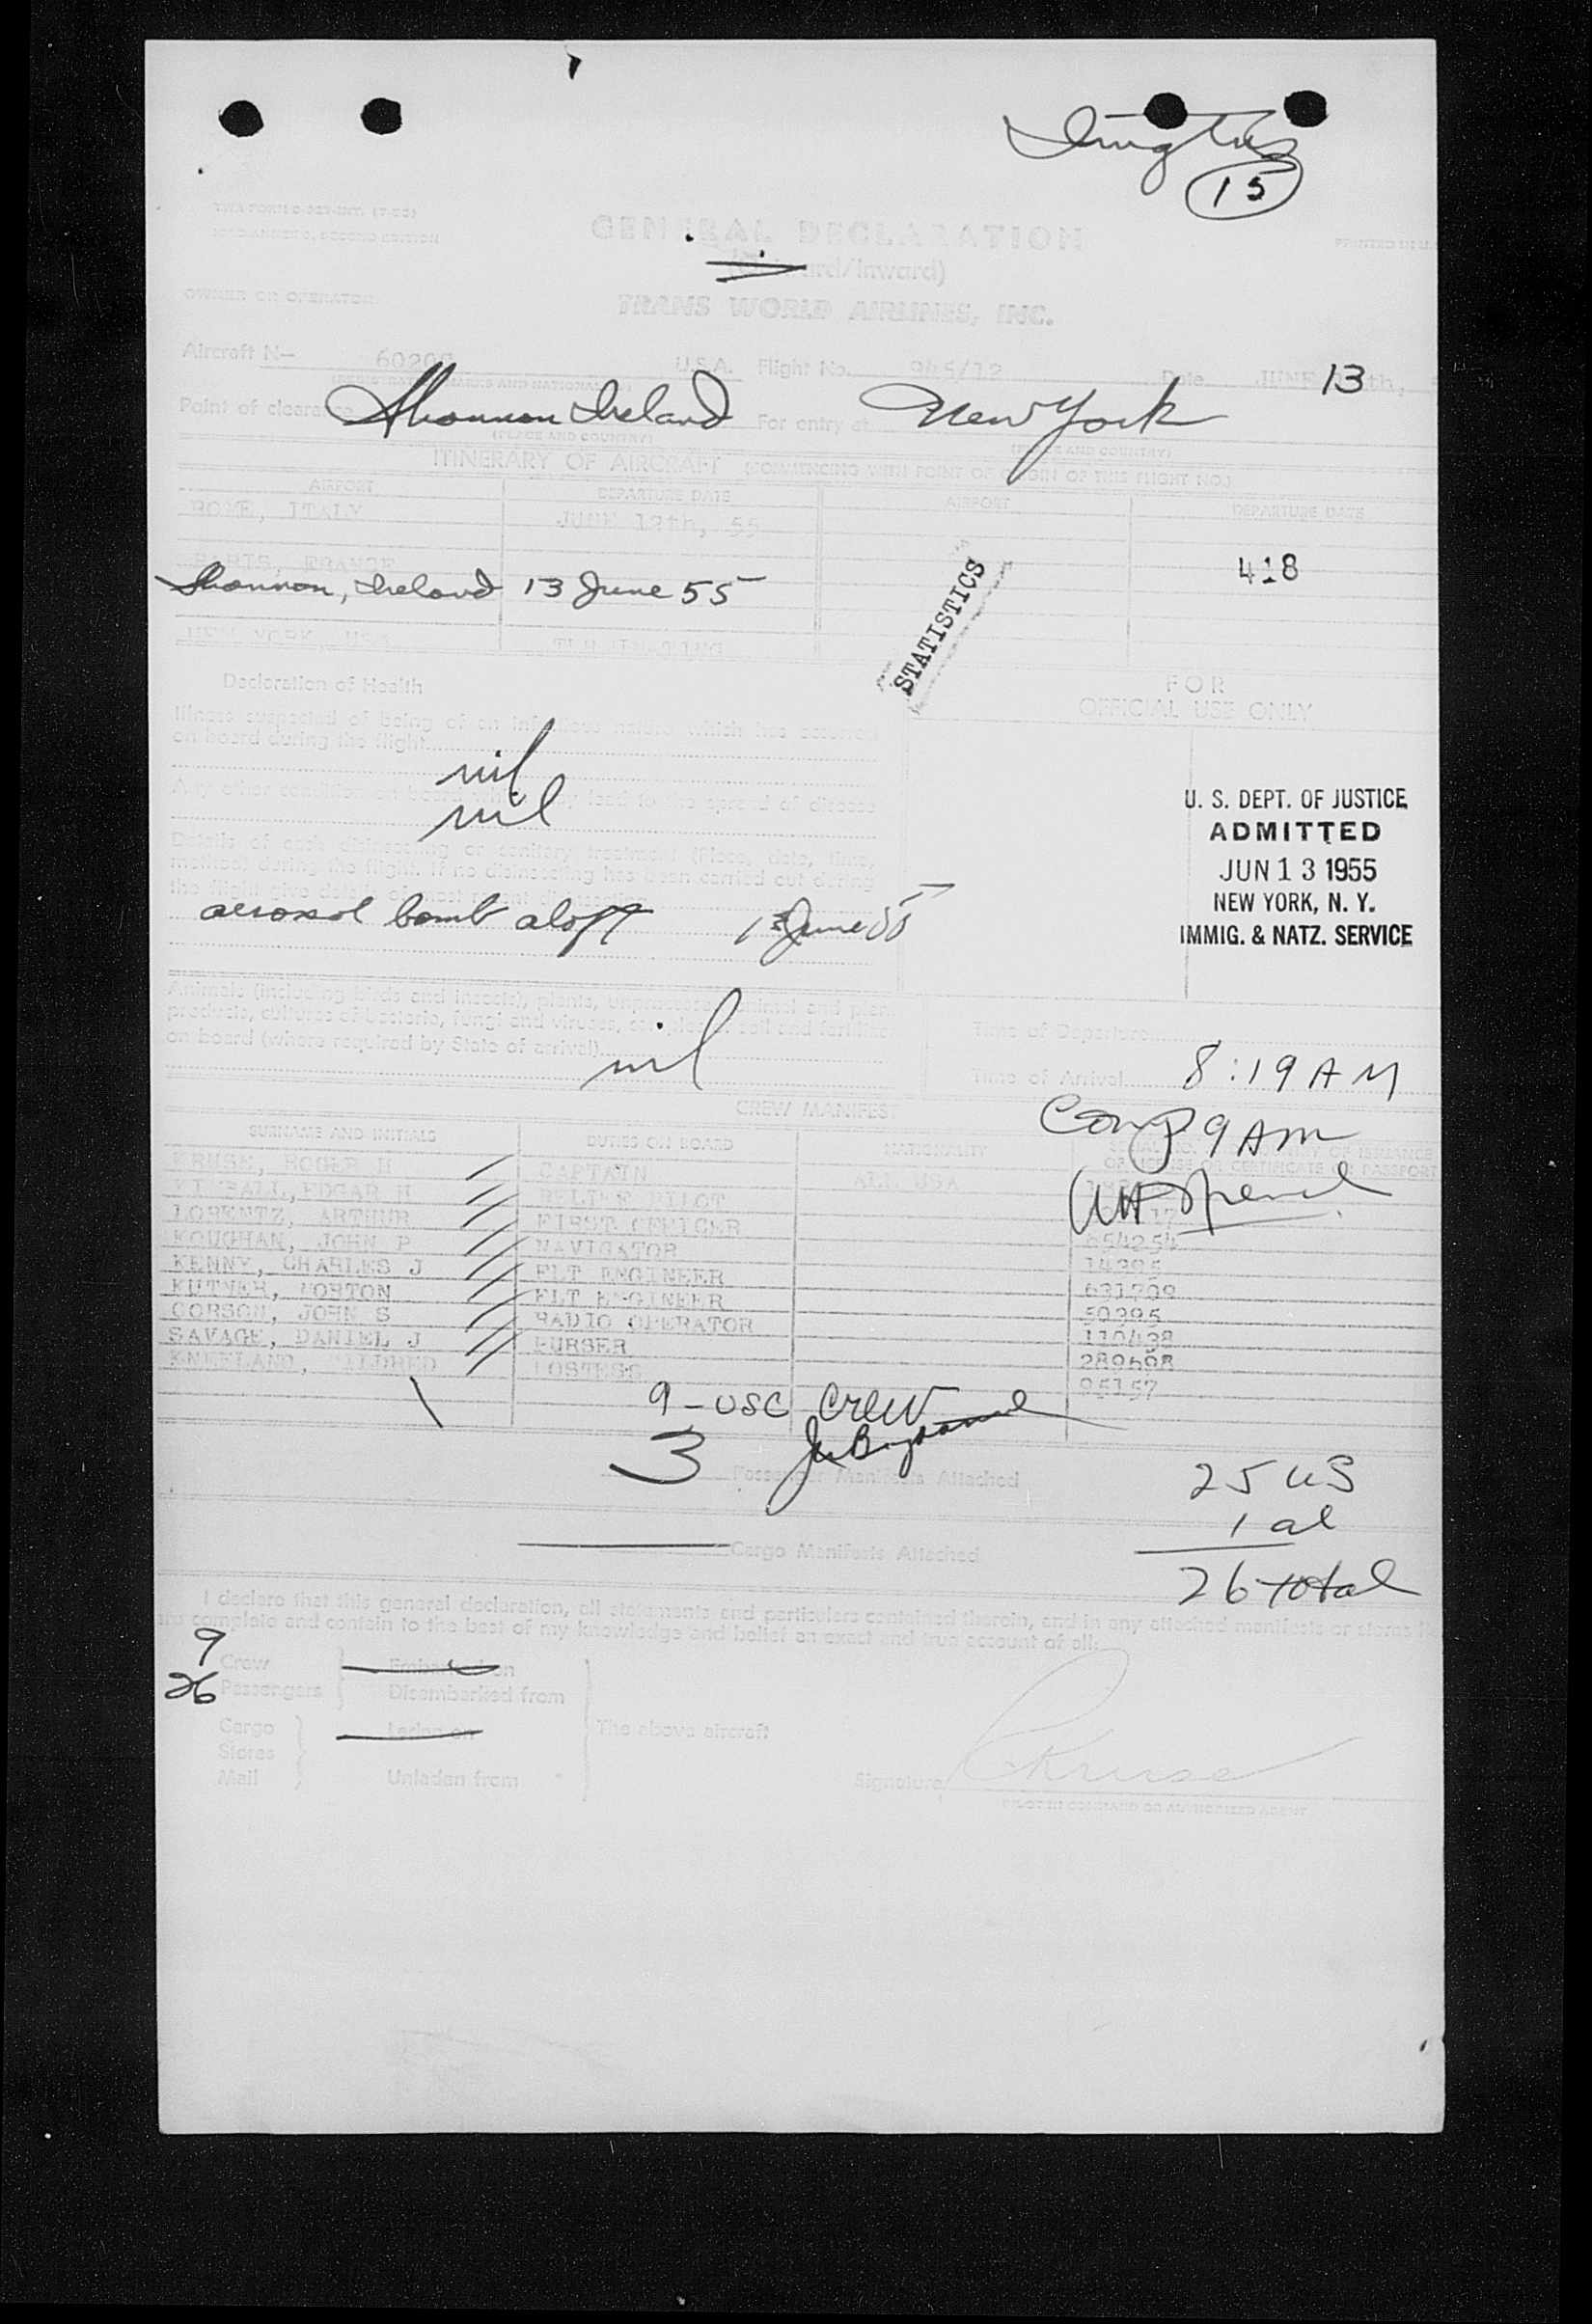 15
GENERAL DECLARATION
(Outward/Inward)
OWNER OR OPERATOR
TRANS WORLD AIRLINES, INC.
Aircraft N— U.S.A. Flight No. 945/12 Date JUNE 13 th,
Point of clearance Shannon Ireland For entry at New York
(PLACE AND COUNTRY) (PLACE AND COUNTRY)
ITINERARY OF AIRCRAFT (COMMENCING WITH POINT OF ORIGIN OF THIS FLIGHT NO.)
AIRPORT DEPARTURE DATE AIRPORT DEPARTURE DATE
ROME, ITALY JUNE 12th, 55
PARIS, FRANCE 418
Shannon, Ireland 13 June 55
STATISTICS
NEW YORK, USA TERMINATING
Declaration of Health
FOR
OFFICIAL USE ONLY
Illness suspected of being of an infectious nature which has occurred
on board during the flight
nil
Any other condition on board which may lead to the spread of disease
nil
U. S. DEPT. OF JUSTICE
ADMITTED
JUN 13 1955
NEW YORK, N. Y.
IMMIG. & NATZ. SERVICE
Details of each disinsecting or sanitary treatment (Place, date, time,
method) during the flight. If no disinsecting has been carried out during
the flight give details of most recent disinsecting
aerosol bomb aloft 13 June 55
Animals (including birds and insects), plants, unprocessed animal and plant
products, cultures of bacteria, fungi and viruses, samples of soil and fertilizer
on board (where required by State of arrival)
nil
Time of Departure
Time of Arrival 8:19 AM
CREW MANIFEST
Comp 9 AM
SURNAME AND INITIALS DUTIES ON BOARD NATIONALITY
KRUSE, ROGER H CAPTAIN ALL USA
KIMBALL, EDGAR H RELIEF PILOT
LORENTZ, ARTHUR FIRST OFFICER
KOUGHAN, JOHN P NAVIGATOR
KENNY, CHARLES J FLT ENGINEER
KUTNER, MORTON FLT ENGINEER
CORSON, JOHN S RADIO OPERATOR
SAVAGE, DANIEL J PURSER
KNEELAND, MILDRED HOSTESS
9 - USC Crew
3 Passenger Manifests Attached
25 US
1 al
Cargo Manifests Attached
26 total
I declare that this general declaration, all statements and particulars contained therein, and in any attached manifests or stores
are complete and contain to the best of my knowledge and belief an exact and true account of all:
9 Crew Embarked on
26 Passengers Disembarked from
Cargo Laden on The above aircraft
Stores
Mail Unladen from
Signature Kruse
PILOT IN COMMAND OR AUTHORIZED AGENT